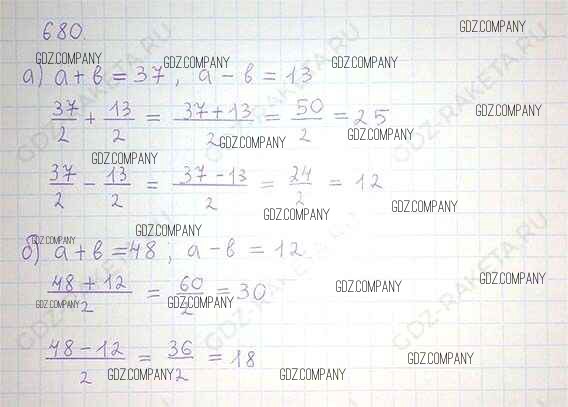 680.
GDZ.COMPANY
GDZ.COMPANY GDZ.COMPANY GDZ.COMPANY
а) a + b = 37, a - b = 13
37/2 + 13/2 = (37 + 13)/2 = 50/2 = 25
GDZ.COMPANY GDZ.COMPANY GDZ.COMPANY
GDZ.COMPANY
37/2 - 13/2 = (37 - 13)/2 = 24/2 = 12
GDZ.COMPANY GDZ.COMPANY
GDZ.COMPANY GDZ.COMPANY
б) a + b = 48; a - b = 12
(48 + 12)/2 = 60/2 = 30
GDZ.COMPANY GDZ.COMPANY GDZ.COMPANY GDZ.COMPANY
(48 - 12)/2 = 36/2 = 18
GDZ.COMPANY GDZ.COMPANY GDZ.COMPANY
GDZ-RAKETA.RU
GDZ-RAKETA.RU
GDZ-RAKETA.RU
GDZ-RAKETA.RU
GDZ-RAKETA.RU
GDZ-RAKETA.RU